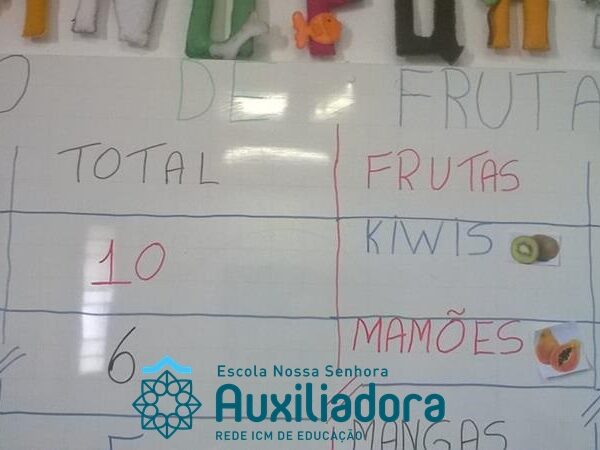 O DE FRUTA
TOTAL FRUTAS
10 KIWIS
6 MAMÕES
MANGAS
Escola Nossa Senhora
Auxiliadora
REDE ICM DE EDUCAÇÃO